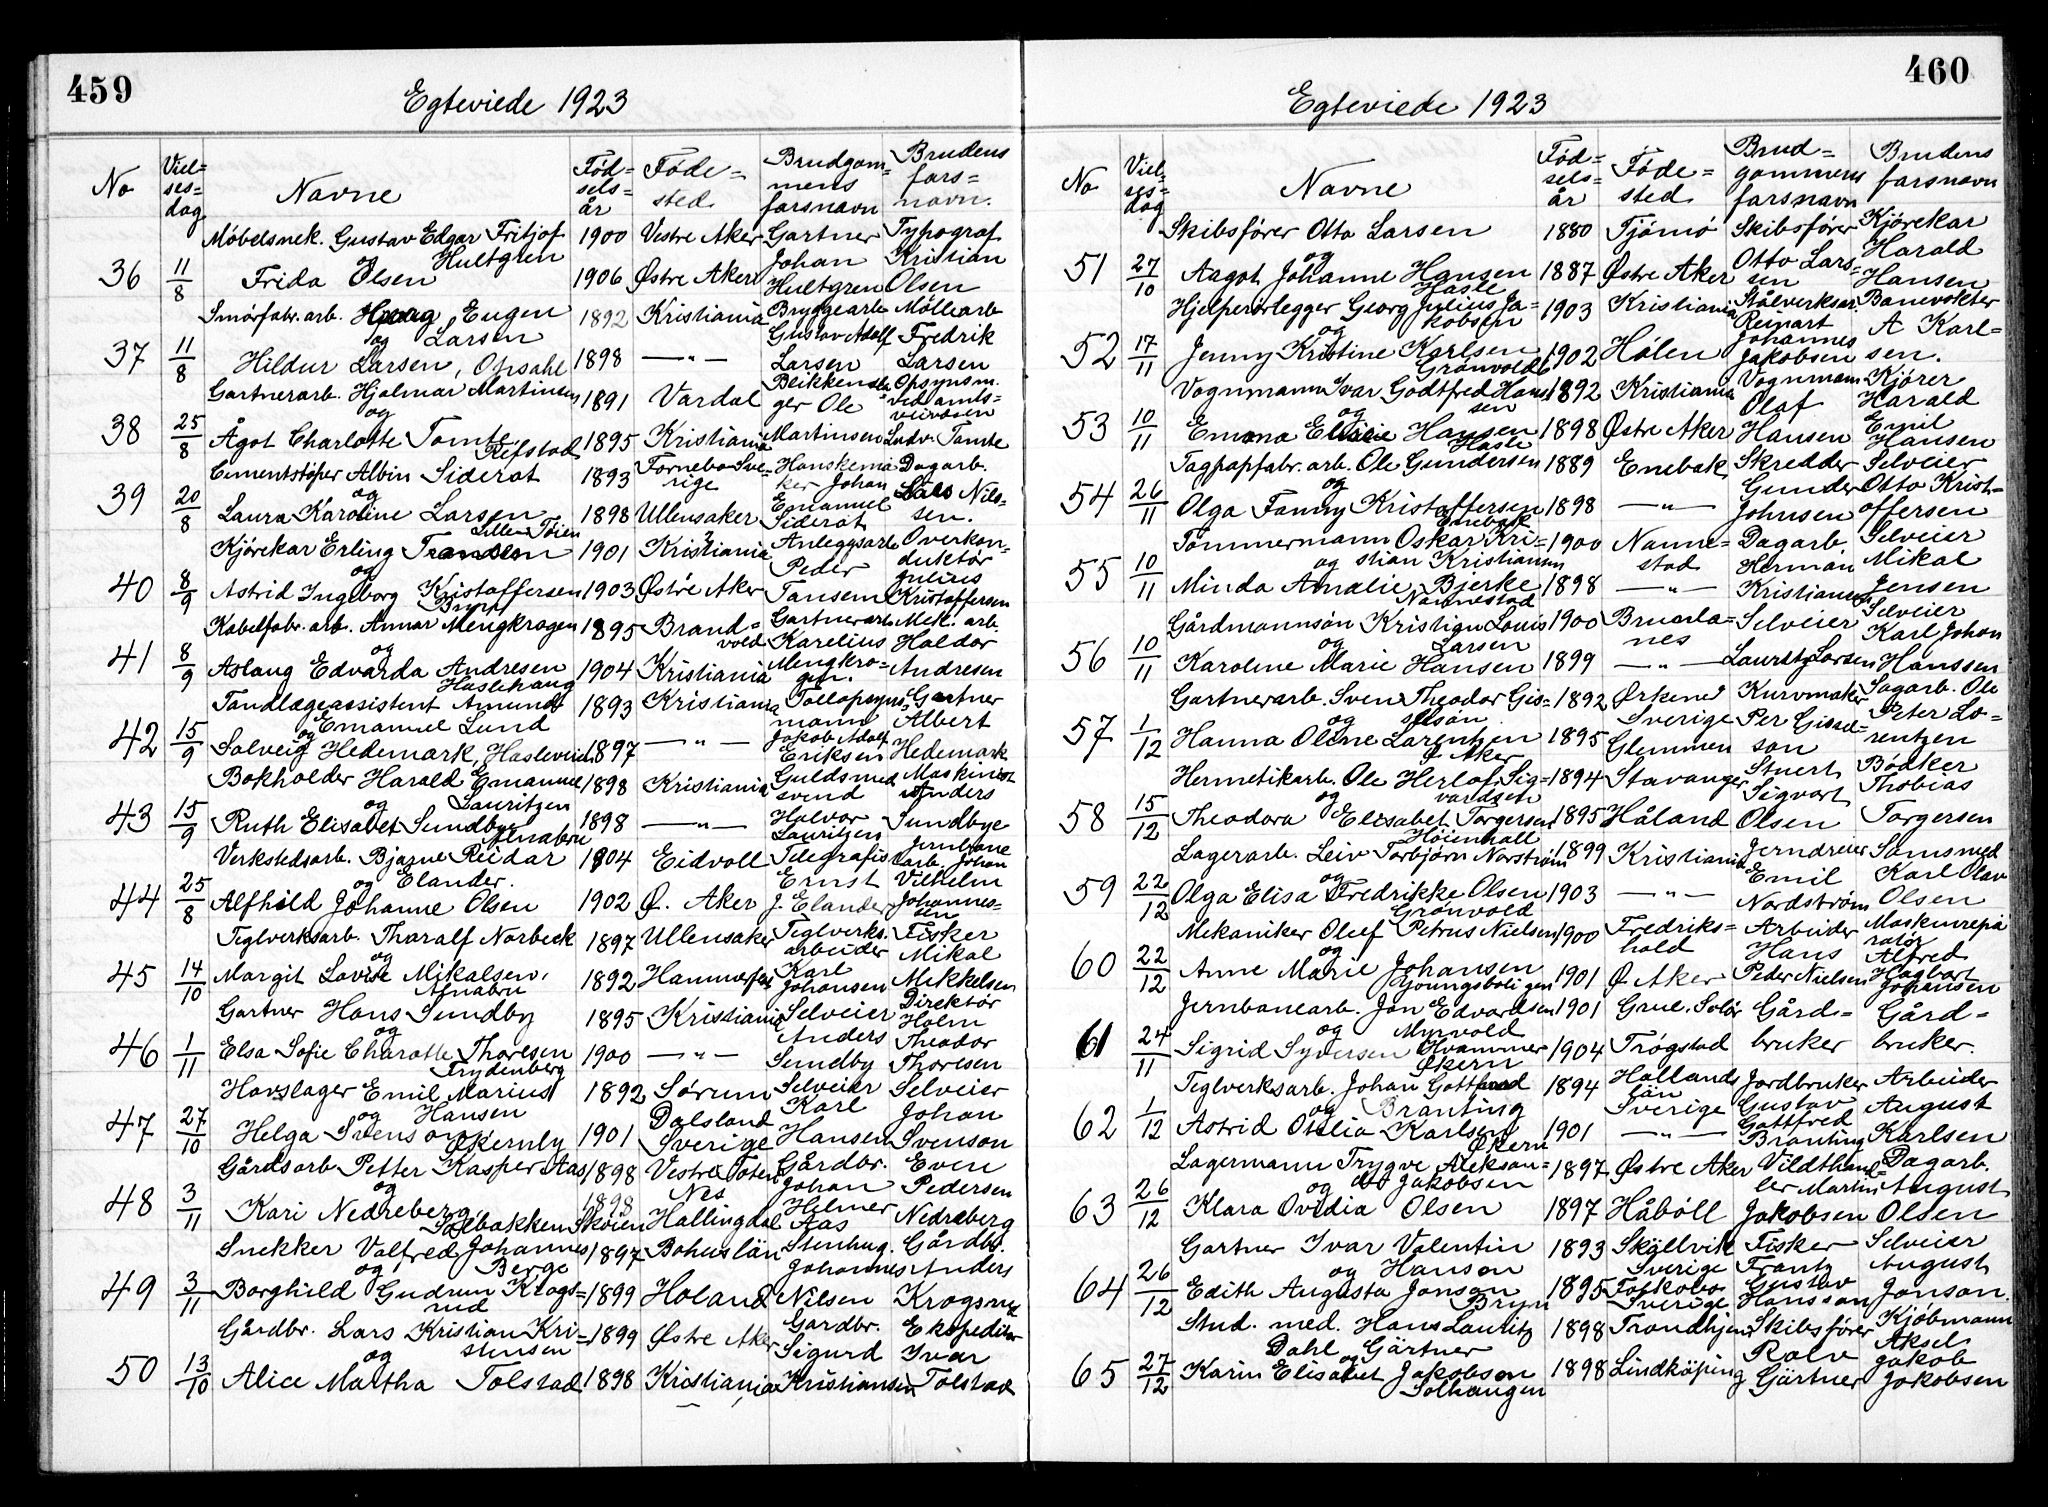 459
Egteviede 1923
No Vielsesdag Navne Fødselsår Fødested Brudgommens farsnavn Brudens farsnavn.
36 11/8 Møbelsnek. Gustav Edgar Fritjof Hultgren 1900 Vestre Aker Gartner Johan Hultgren
og Frida Olsen 1906 Østre Aker Typograf Kristian Olsen
37 11/8 Smørfabr. arb. Eugen Larsen 1892 Kristiania Bryggearb. Gustav Adolf Larsen
og Hildur Larsen, Opsahl 1898 —"— Møllearb. Fredrik Larsen
38 25/8 Gartnerarb. Hjalmar Martinsen 1891 Vardal Blikkenslager Ole Martinsen
og Ågot Charlotte Tomte, Refstad 1895 Kristiania Opsynsm. ved amtsveivæsen Ludv. Tomte
39 20/8 Cementstøper Albin Siderot 1893 Tornebo Sverige Hanskemaker Johan Emanuel Siderot
og Laura Karoline Larsen Lille Tøien 1898 Ullensaker Dagarb. Lars Nilssen.
40 8/9 Kjørekar Erling Transen 1901 Kristiania Anleggsarb. Peder Tansem
og Astrid Ingeborg Kristoffersen Bryn 1903 Østre Aker Overkonduktør Julius Kristoffersen
41 8/9 Kabelfabr. arb. Annar Mengkrogen 1895 Brandvold Gartnerarb. Karelius Mengkrogen.
og Aslaug Edvarda Andresen Haslehaug 1904 Kristiania Mek. arb. Haldor Andresen
42 15/9 Tandlægeassistent Amund Emanuel Lund 1893 Kristiania Tollopsynsmann Jakob Adolf Eriksen
og Solveig Hedemark, Hasleveien 1897 —"— Gartner Albert Hedemark
43 15/9 Bokholder Harald Emanuel Lauritzen 1898 Kristiania Guldsmedsvend Halvor Lauritzen
og Ruth Elisabet Sundbye Alnabru 1898 —"— Maskinist Anders Sundbye
44 25/8 Verkstedsarb. Bjarne Reidar Elander. 1904 Eidvoll Telegrafist Ernst J. Elander
og Alfhild Johanne Olsen 1902 Ø. Aker Jernbanearb. Johan Vilhelm Johannessen
45 14/10 Teglverksarb. Tharalf Norbeck 1897 Ullensaker Teglverksarbeider Karl Johansen
og Margit Lovise Mikalsen, Alnabru 1892 Hammerfest Fisker Mikal Mikkelsen
46 1/11 Gartner Hans Sundby 1895 Kristiania Selveier Anders Sundby
og Elsa Sofie Charotte Thoresen Frydenberg 1900 —"— Direktør Holm Theodor Thoresen
47 27/10 Hovslager Emil Marius Hansen 1892 Sørum Selveier Karl Hansen
og Helga Svenson, Økernly 1901 Dalsland Sverige Selveier Johan Svenson
48 3/11 Gårdsarb. Petter Kasper Aas 1898 Vestre Toten Gårdbr. Johan Helmer Aas
og Kari Nedreberg, Solbakken Skøien 1898 Nes Hallingdal Even Pedersen Nedreberg
49 3/11 Snekker Valfred Johannes Berge 1897 Bohuslän Stenhug. Johannes Nilsen
og Borghild Gudrun Krogsrud 1899 Høland Gårdbr. Anders Krogsrud
50 13/10 Gårdbr. Lars Kristian Kristensen 1899 Østre Aker Gardbr. Sigurd Kristiansen
og Alice Martha Tolstad 1898 Kristiania Ekspeditør Ivar Tolstad
460
Egteviede 1923
No Vielsesdag Navne Fødselsår Fødested Brudgommens farsnavn Brudens farsnavn
51 27/10 Skibsfører Otto Larsen 1880 Tjømø Skibsfører Otto Larssen
og Aagot Johanne Hansen Hasle 1887 Østre Aker Kjørekar Harald Hansen
52 17/11 Hjelperørlegger Georg Julius Jakobsen 1903 Kristiania Stålverksar. Reinart Johannes Jakobsen
og Jenny Kristine Karlsen Grønvold 1902 Hølen Banevokter A Karlsen.
53 10/11 Vognmann Ivar Godtfred Hansen 1892 Kristiania Vognmann Olaf Hansen
og Emma Elisie Hansen Hasle 1898 Østre Aker Kjører Harald Emil Hansen
54 26/11 Tagpapfabr. arb. Ole Gundersen 1889 Enebak Skredder Gunder Johnsen
og Olga Fanny Kristoffersen Enebak 1898 —"— Selveier Otto Kristoffersen
55 10/11 Tømmermann Oskar Kristian Kristiansen 1900 Nannestad Dagarb. Herman Kristiansen
og Minda Amalie Bjerke Nannestad 1898 —"— Selveier Mikal Jensen
56 10/11 Gårdmannsøn Kristian Louis Larsen 1900 Brunlanes Selveier Lauritz Larsen
og Karoline Marie Hansen 1899 —"— Selveier Karl Johan Hanssen
57 1/12 Gartnerarb. Sven Theodor Gisselson 1892 Ørkened Sverige Kurvmaker Per Gisselson
og Hanna Oline Larentzen Ø Aker 1895 Glemmen Sagarb. Ole Peter Lorentzen
58 15/12 Hermetikarb. Ole Herlof Sigvardsen 1894 Stavanger Stuert Sigvart Olsen
og Theodora Elisabet Torgersen Høienhall 1895 Håland Bødker Thobias Torgersen
59 22/12 Lagerarb. Leiv Torbjørn Norstrøm 1899 Kristiania Jerndreier Emil Nordstrøm
og Olga Elisa Fredrikke Olsen Grønvold 1903 —"— Samsmed Karl Olav Olsen
60 22/12 Mekaniker Oluf Petrus Nielsen 1900 Fredrikshald Arbeider Hans Peder Nielsen
og Anne Marie Johansen Pyoungsboligen 1901 Ø Aker Maskinrepiratør Alfred Hagbart Johansen
61 24/11 Jernbanearb. Jon Edvardsen Myrvold 1901 Grue. Solør Gårdbruker
og Sigrid Syversen Hvammer Økern 1904 Trøgstad Gårdbruker.
62 1/12 Teglverksarb. Johan Gottfred Branting 1894 Hallands län Sverige Jordbruker Gustav Gottfred Branting
og Astrid Otilia Karlsen Økern 1901 —"— Arbeider August Karlsen
63 26/12 Lagermann Trygve Aleksander Jakobsen 1897 Østre Aker Vildthandler Martin Jakobsen
og Klara Ovidia Olsen 1897 Håbøll Dagarb. August Olsen
64 26/12 Gartner Ivar Valentin Hanson 1893 Skällvik Sverige Fisker Frantz Gustav Hansson
og Edith Augusta Jonson Bryn 1895 Sverige Selveier August Jonson.
65 27/12 Stud. med. Hans Lauritz Dahl Gärtner 1898 Trondhjem Skibsfører Rolv Gärtner
og Karin Elisabet Jakobsen Solhaugen 1898 Lindköping Kjøbmann Aksel Jakob Jakobsen